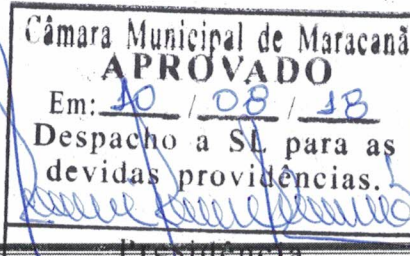 Câmara Municipal de Maracanã
APROVADO
Em: 10 / 08 / 18
Despacho a SL para as
devidas providências.
Presidência